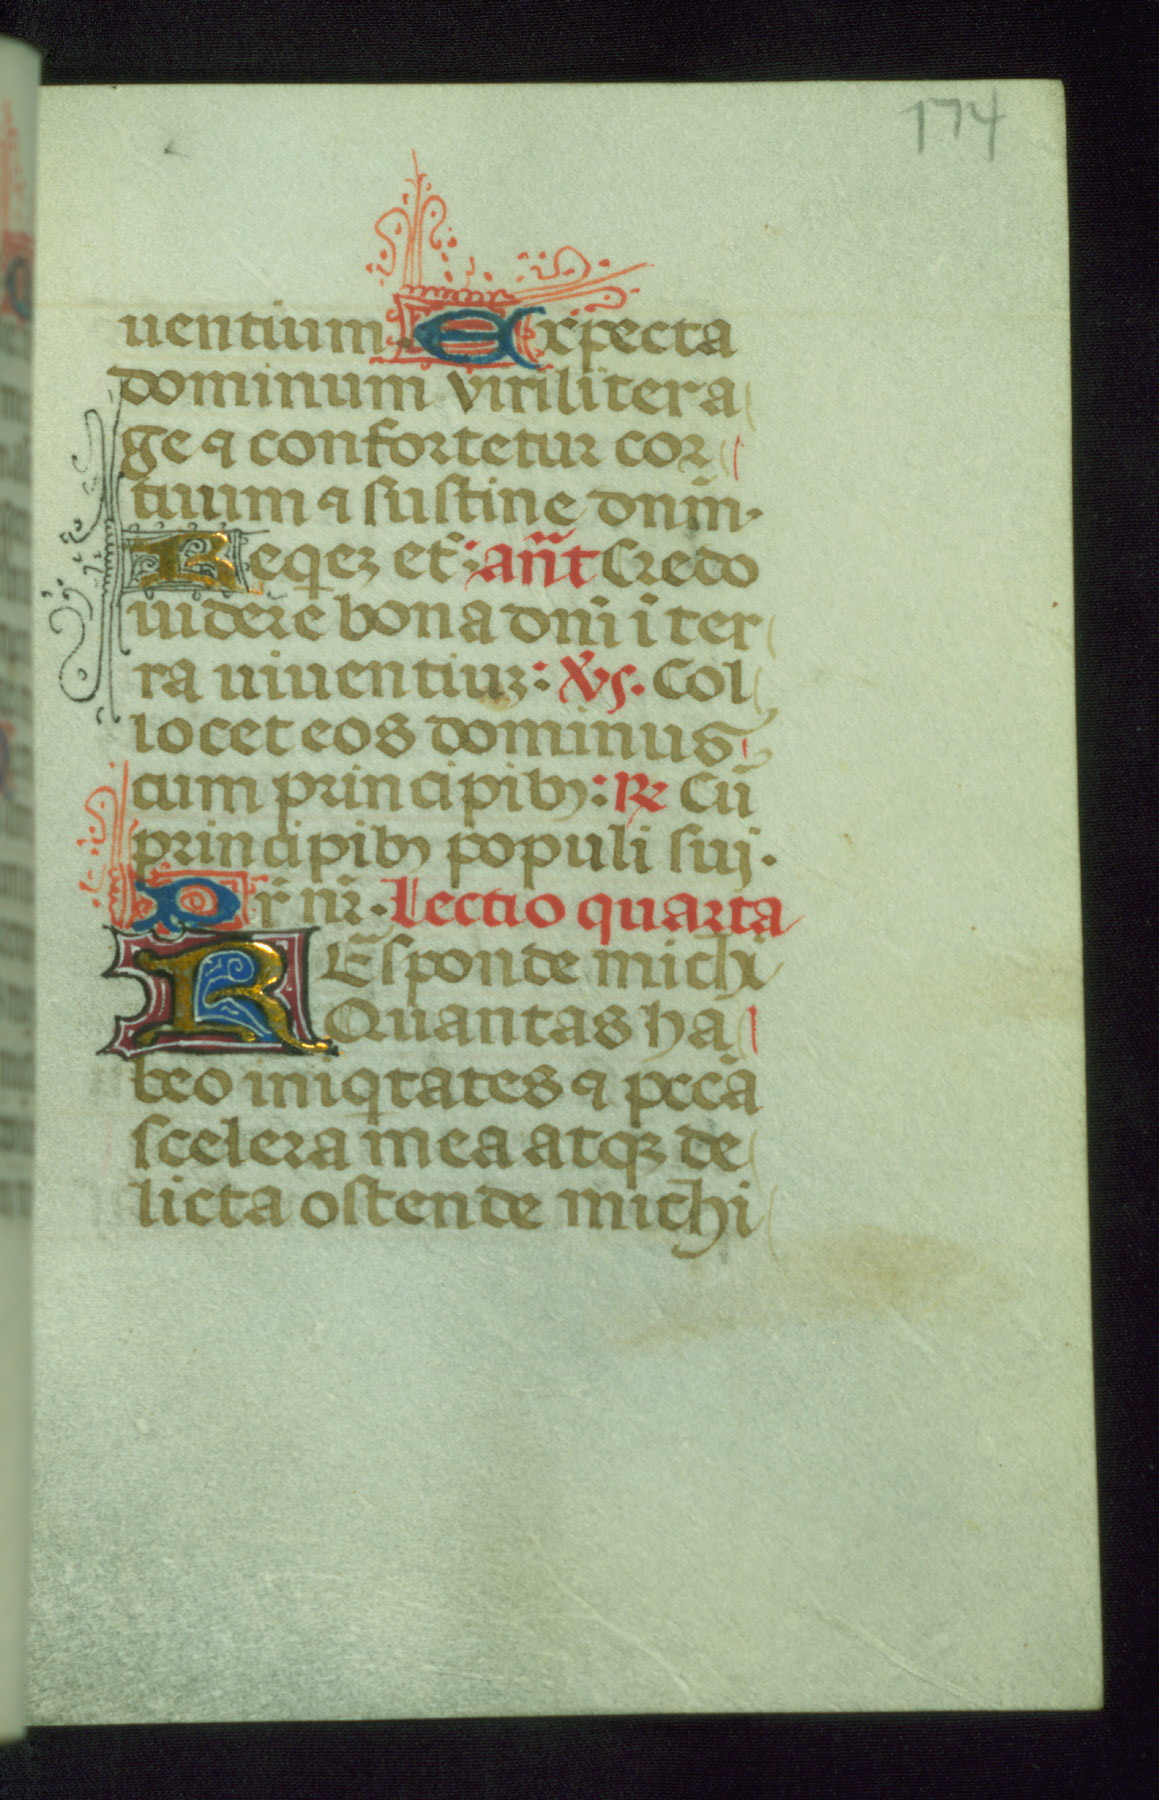 174
uentium. Expecta
dominum viriliter a
ge ⁊ confortetur cor
tuum ⁊ sustine dnm̄.
Reqeꝫ et̄: an̄t Credo
uidere bona dnī ī ter
ra uiuentiuꝫ: Vs. Col
locet eos dominus
cum principibꝰ: ℟ Cū
principibꝰ populi suj.
Pr̄ nr̄. Lectio quarta
REsponde michi
Quantas ha
beo iniqtates ⁊ peccā
scelera mea atqꝫ de
licta ostende michi